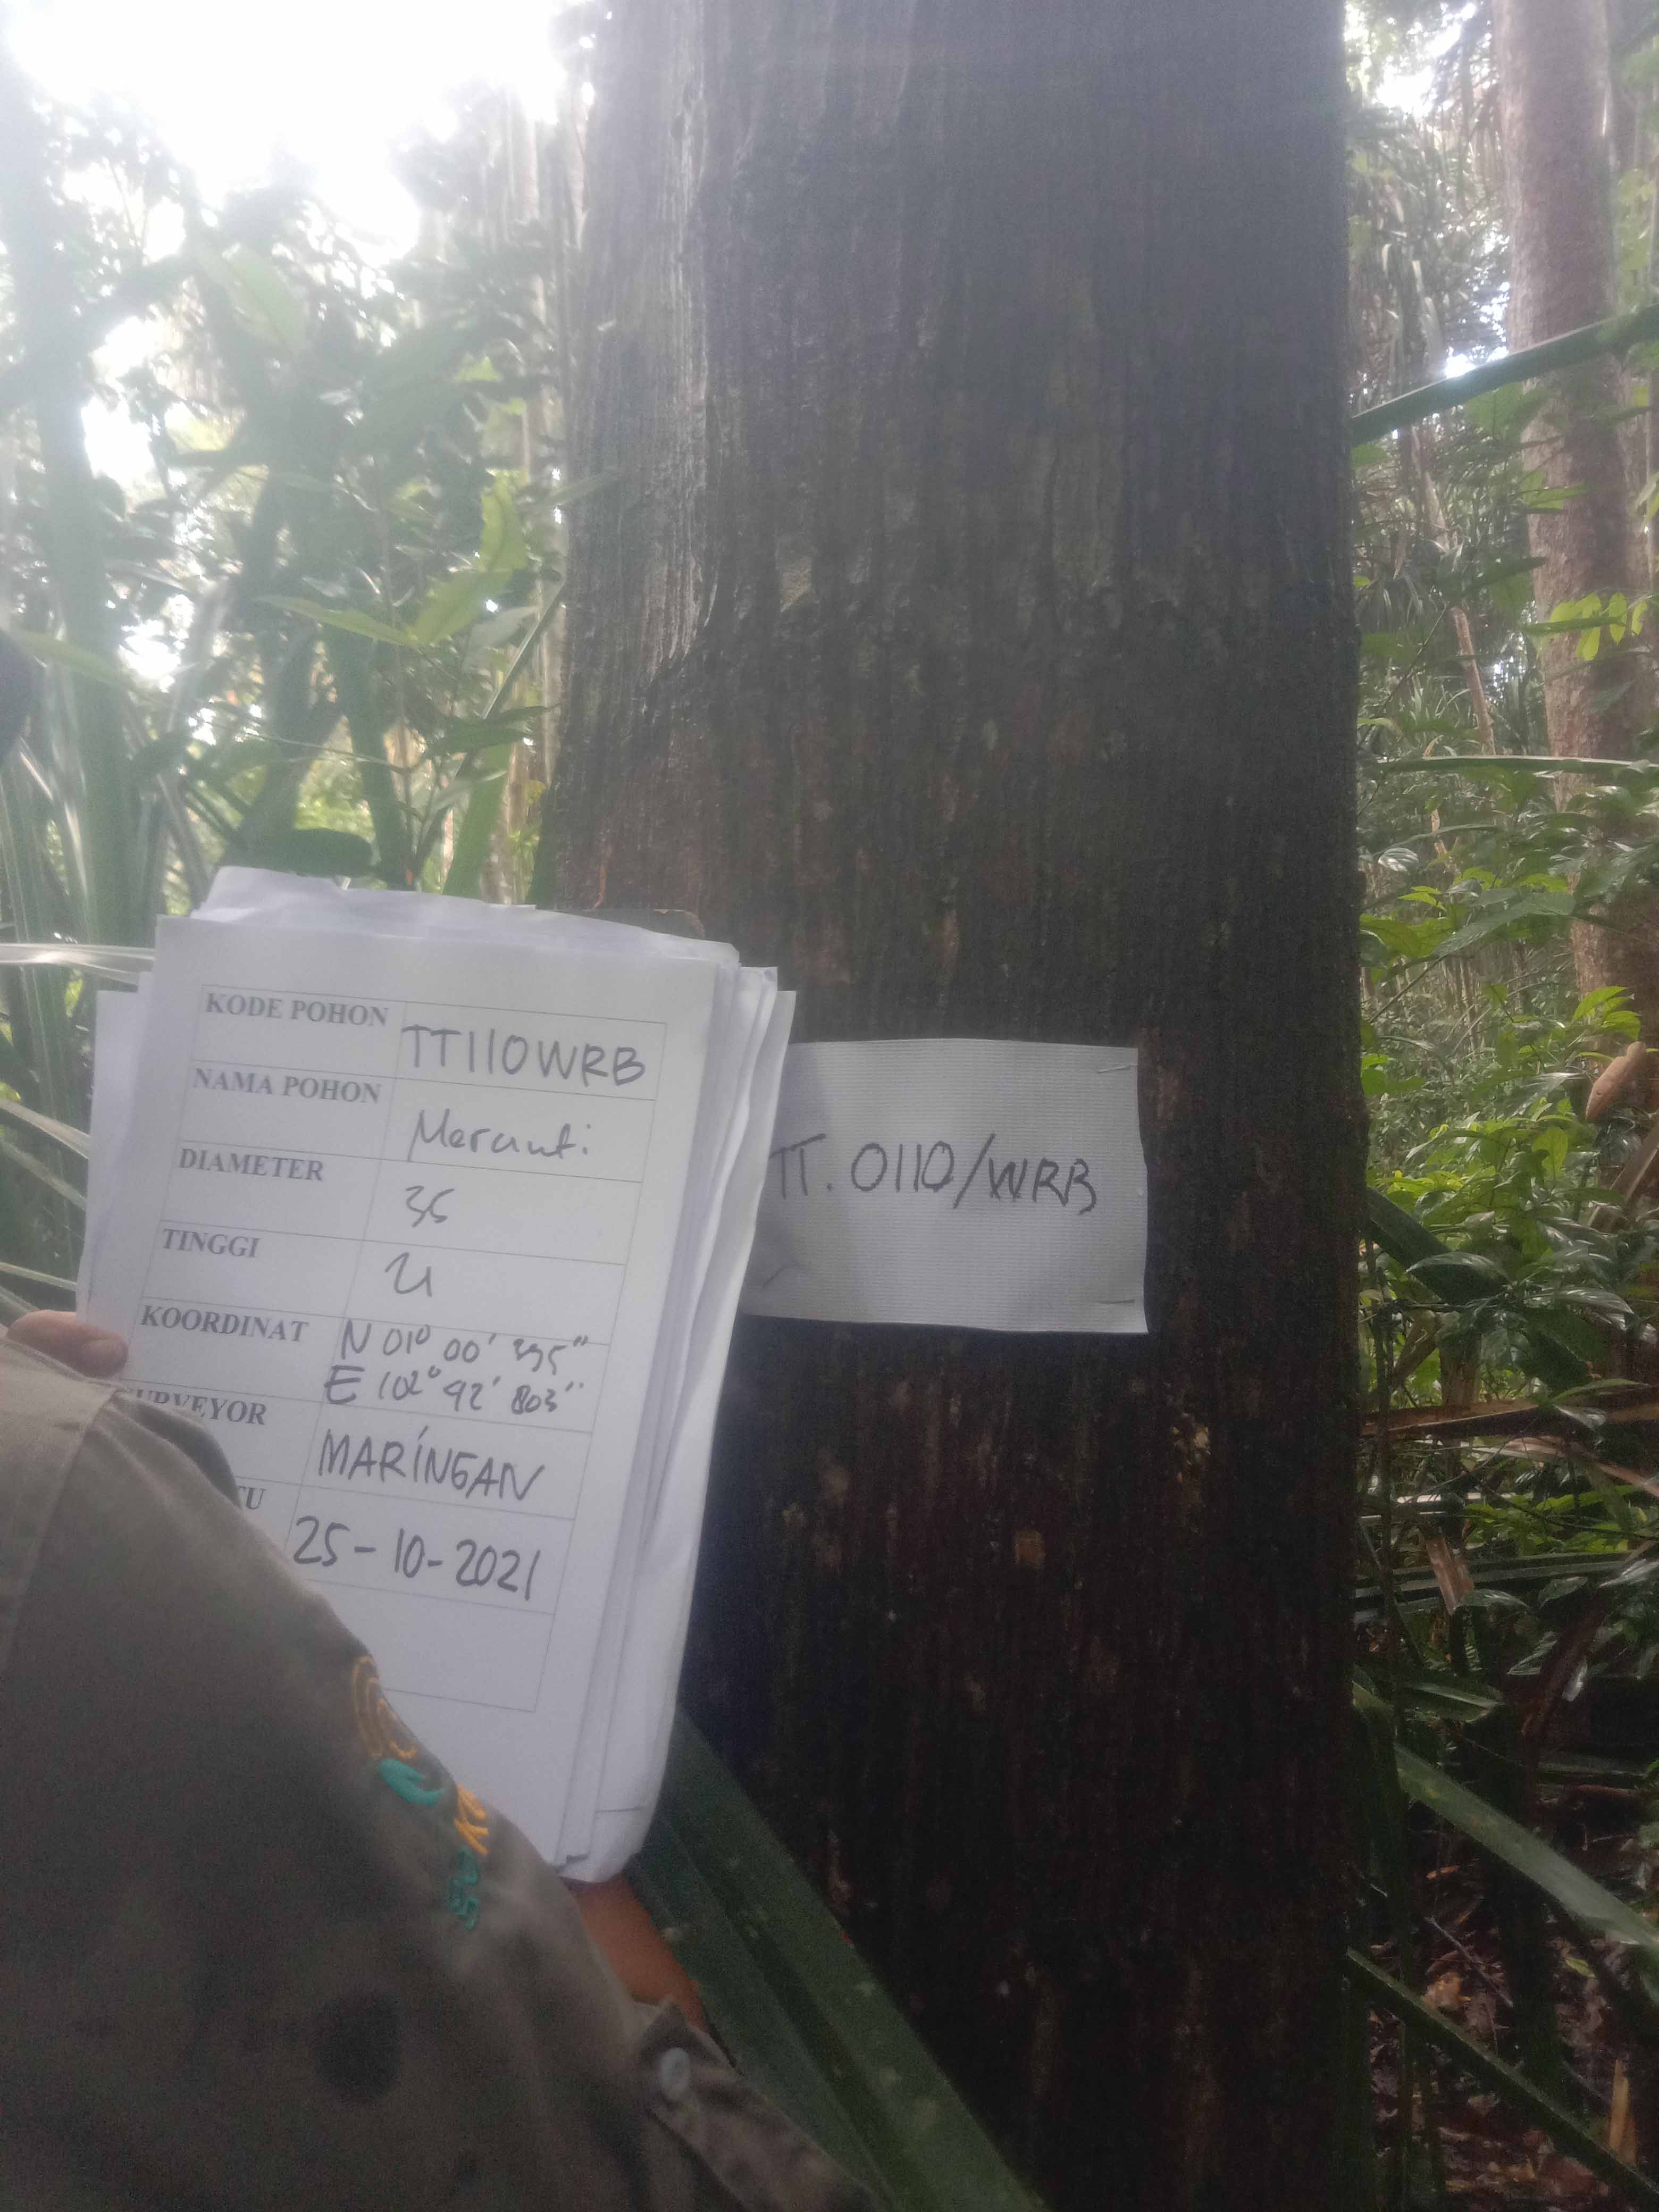 KODE POHON TT110WRB
NAMA POHON Meranti
DIAMETER 35
TINGGI 21
KOORDINAT N 01° 00' 395"
E 102° 92' 803"
URVEYOR MARINGAN
TU 25-10-2021
TT. 0110/WRB